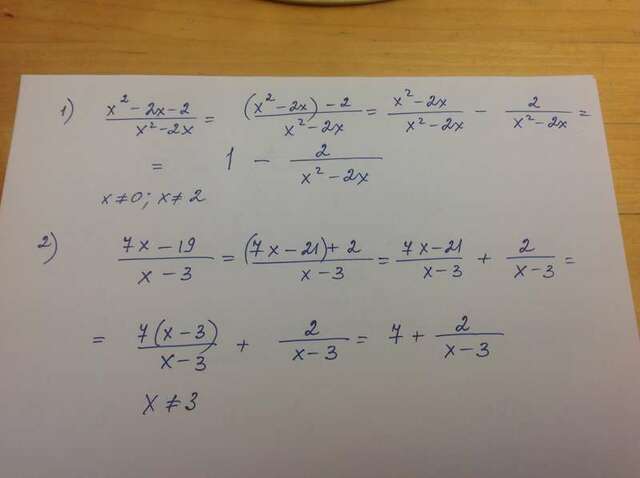 1) (x² - 2x - 2)/(x² - 2x) = ((x² - 2x) - 2)/(x² - 2x) = (x² - 2x)/(x² - 2x) - 2/(x² - 2x) =
= 1 - 2/(x² - 2x)
x ≠ 0; x ≠ 2
2) (7x - 19)/(x - 3) = ((7x - 21) + 2)/(x - 3) = (7x - 21)/(x - 3) + 2/(x - 3) =
= 7(x - 3)/(x - 3) + 2/(x - 3) = 7 + 2/(x - 3)
x ≠ 3